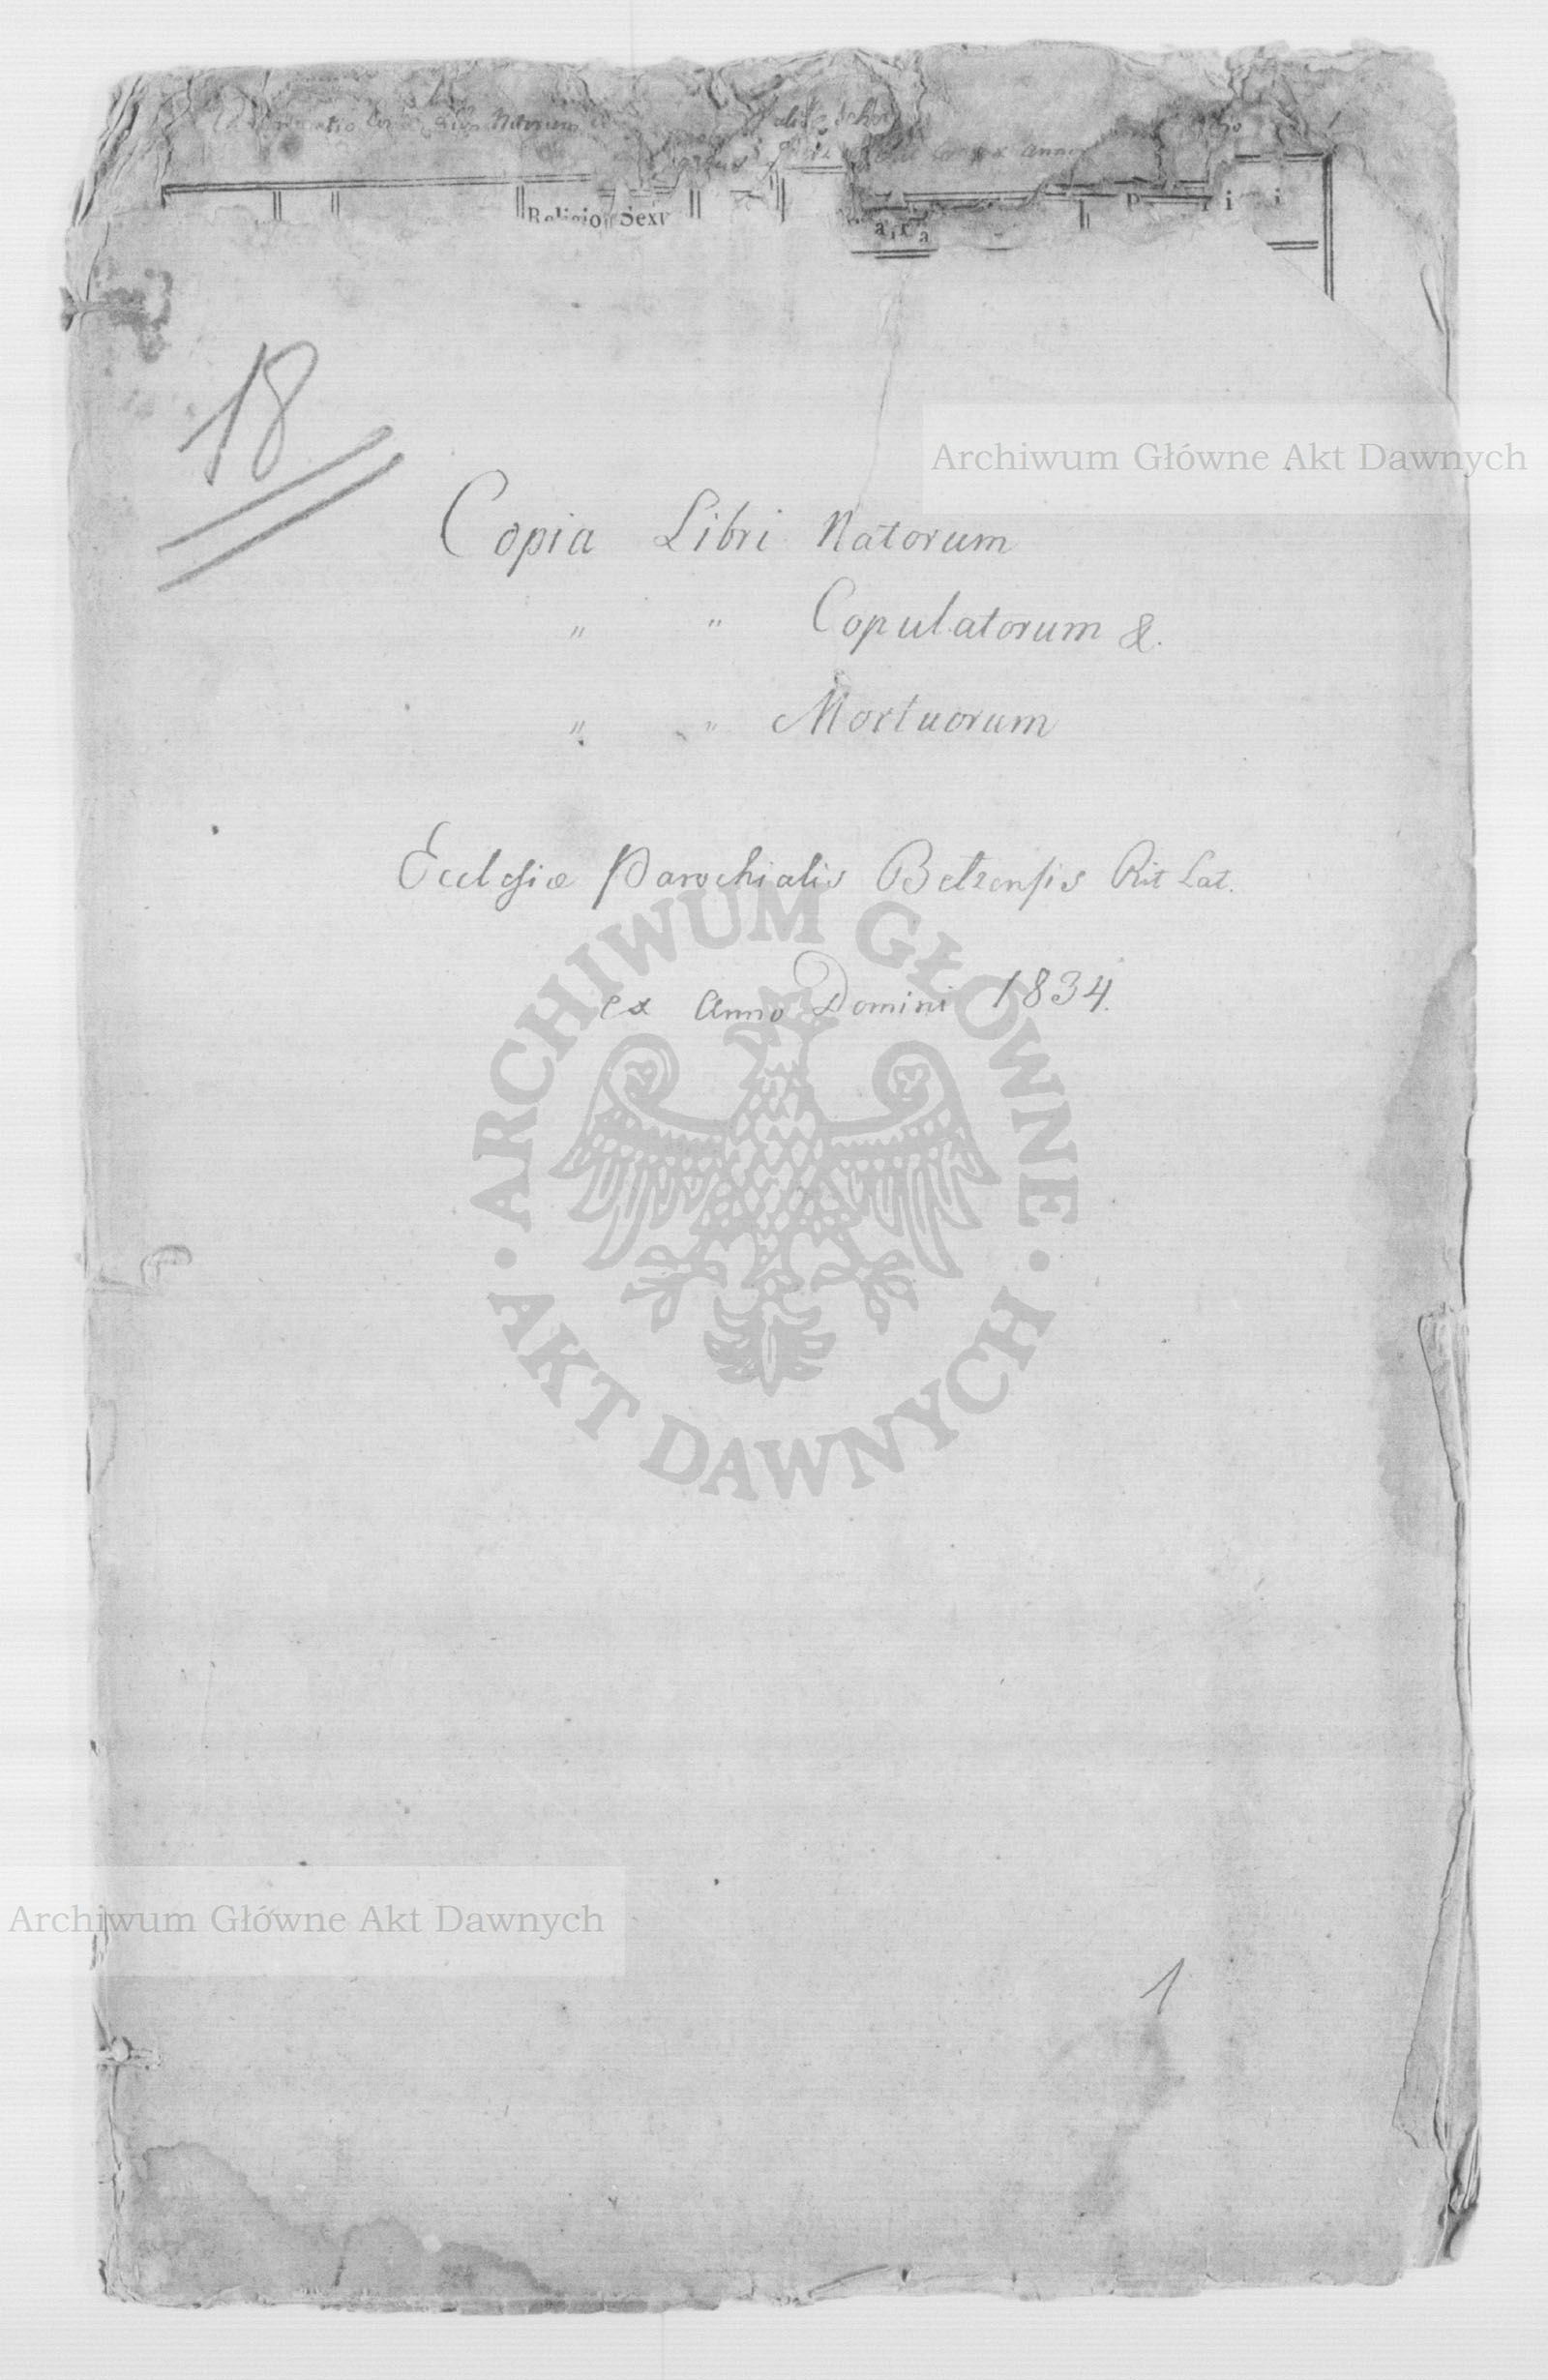 Natorum
ex anno
Religio Sexu
18
Archiwum Główne Akt Dawnych
Copia Libri Natorum
" " Copulatorum &.
" " Mortuorum
Ecclesiæ Parochialis Belzensis Rit Lat.
ex Anno Domini 1834.
ARCHIWUM GŁÓWNE
AKT DAWNYCH
Archiwum Główne Akt Dawnych
1